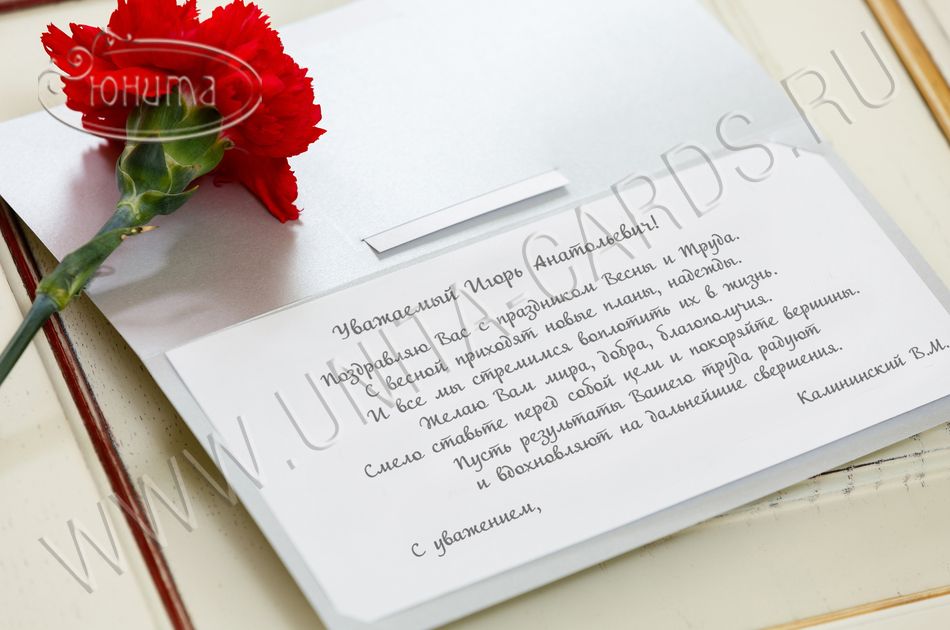 Юнита
WWW.UNITA-CARDS.RU
Уважаемый Игорь Анатольевич!
Поздравляю Вас с праздником Весны и Труда.
С весной приходят новые планы, надежды.
И все мы стремимся воплотить их в жизнь.
Желаю Вам мира, добра, благополучия.
Смело ставьте перед собой цели и покоряйте вершины.
Пусть результаты Вашего труда радуют
и вдохновляют на дальнейшие свершения.
Калининский В.М.
С уважением,